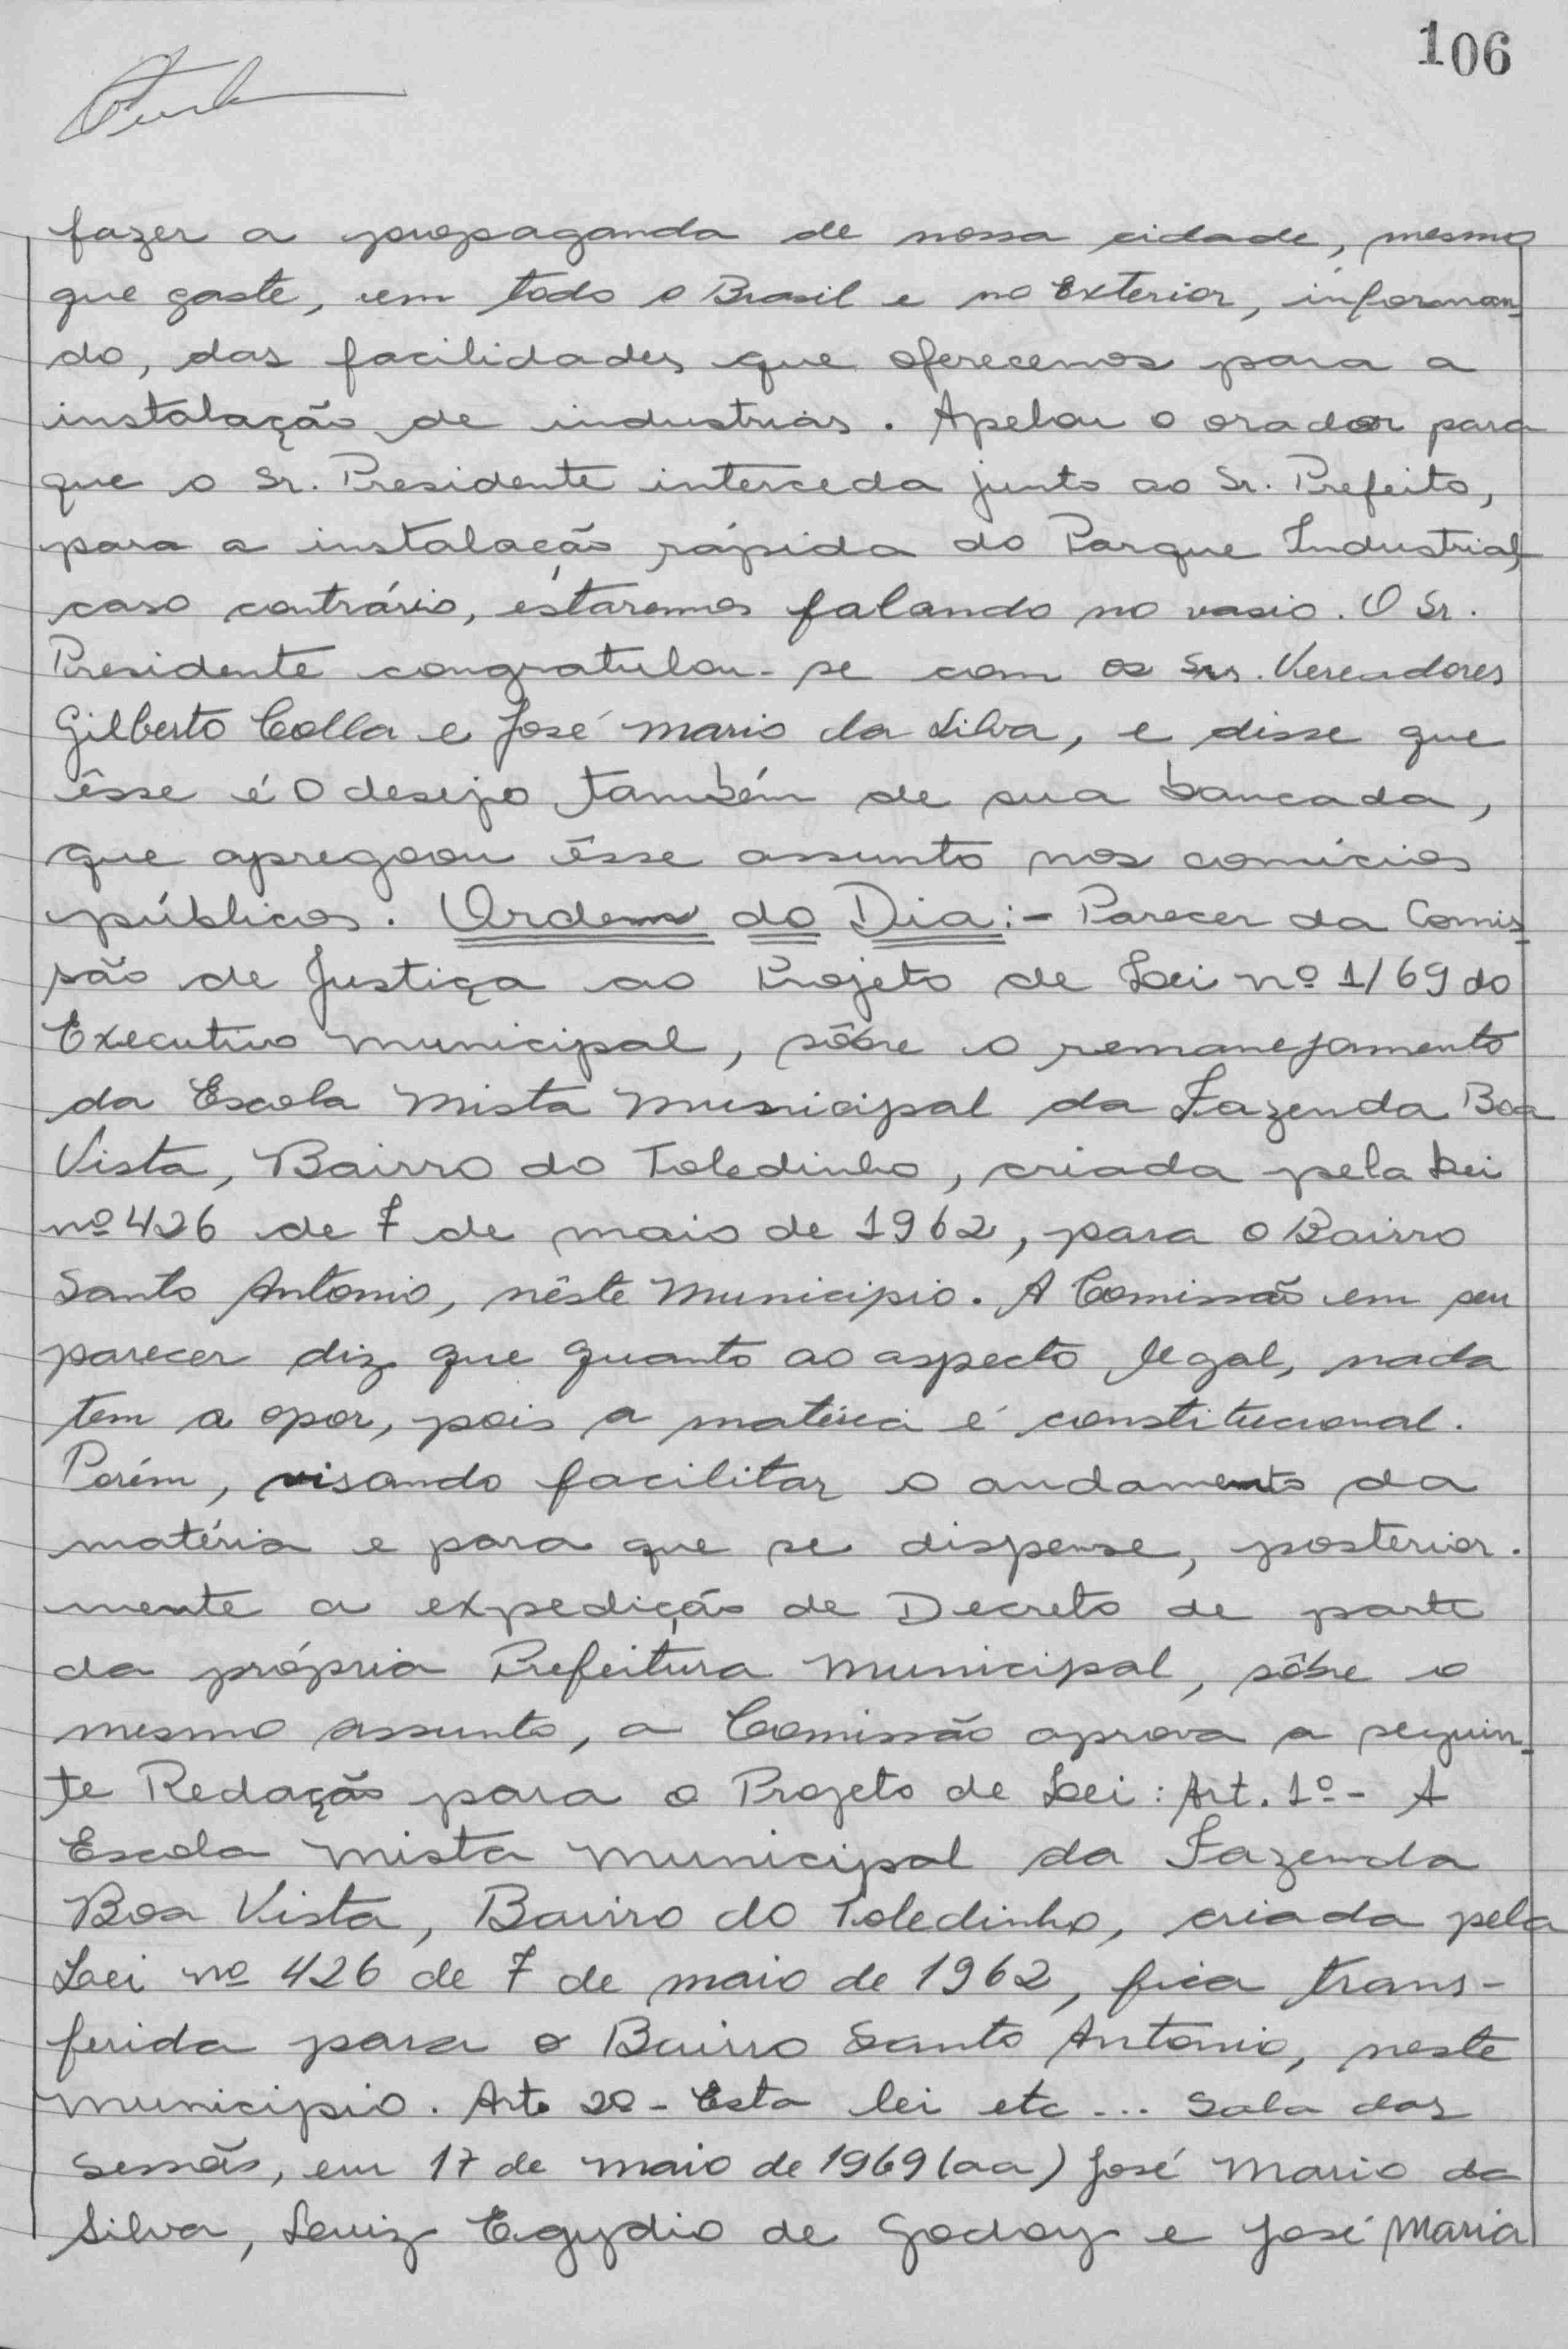 106
fazer a propaganda de nossa cidade, mesmo
que gaste, em todo o Brasil e no Exterior, informan-
do, das facilidades que oferecemos para a
instalação de industrias. Apelou o orador para
que o Sr. Presidente interceda junto ao Sr. Prefeito,
para a instalação rápida do Parque Industrial,
caso contrário, estaremos falando no vasio. O Sr.
Presidente congratulou-se com os Srs. Vereadores
Gilberto Colla e José Mario da Silva, e disse que
êsse é o desejo também de sua bancada,
que apregoou êsse assunto nos comícios
públicos. Ordem do Dia:- Parecer da Comis-
são de Justiça ao Projeto de Lei nº 1/69 do
Executivo Municipal, sôbre o remanejamento
da Escola Mista Municipal da Fazenda Boa
Vista, Bairro do Toledinho, criada pela Lei
nº 426 de 7 de maio de 1962, para o Bairro
Santo Antonio, nêste Municipio. A Comissão em seu
parecer diz que quanto ao aspecto legal, nada
tem a opor, pois a matéria é constitucional.
Porém, visando facilitar o andamento da
matéria e para que se dispense, posterior-
mente a expedição de Decreto de parte
da própria Prefeitura Municipal, sôbre o
mesmo assunto, a Comissão aprova a seguin-
te Redação para o Projeto de Lei: Art. 1º- A
Escola Mista Municipal da Fazenda
Boa Vista, Bairro do Toledinho, criada pela
Lei nº 426 de 7 de maio de 1962, fica trans-
ferida para o Bairro Santo Antonio, neste
municipio. Art. 2º- Esta lei etc... Sala das
Sessões, em 17 de maio de 1969 (aa) José Mario da
Silva, Luiz Egydio de Godoy e José Maria